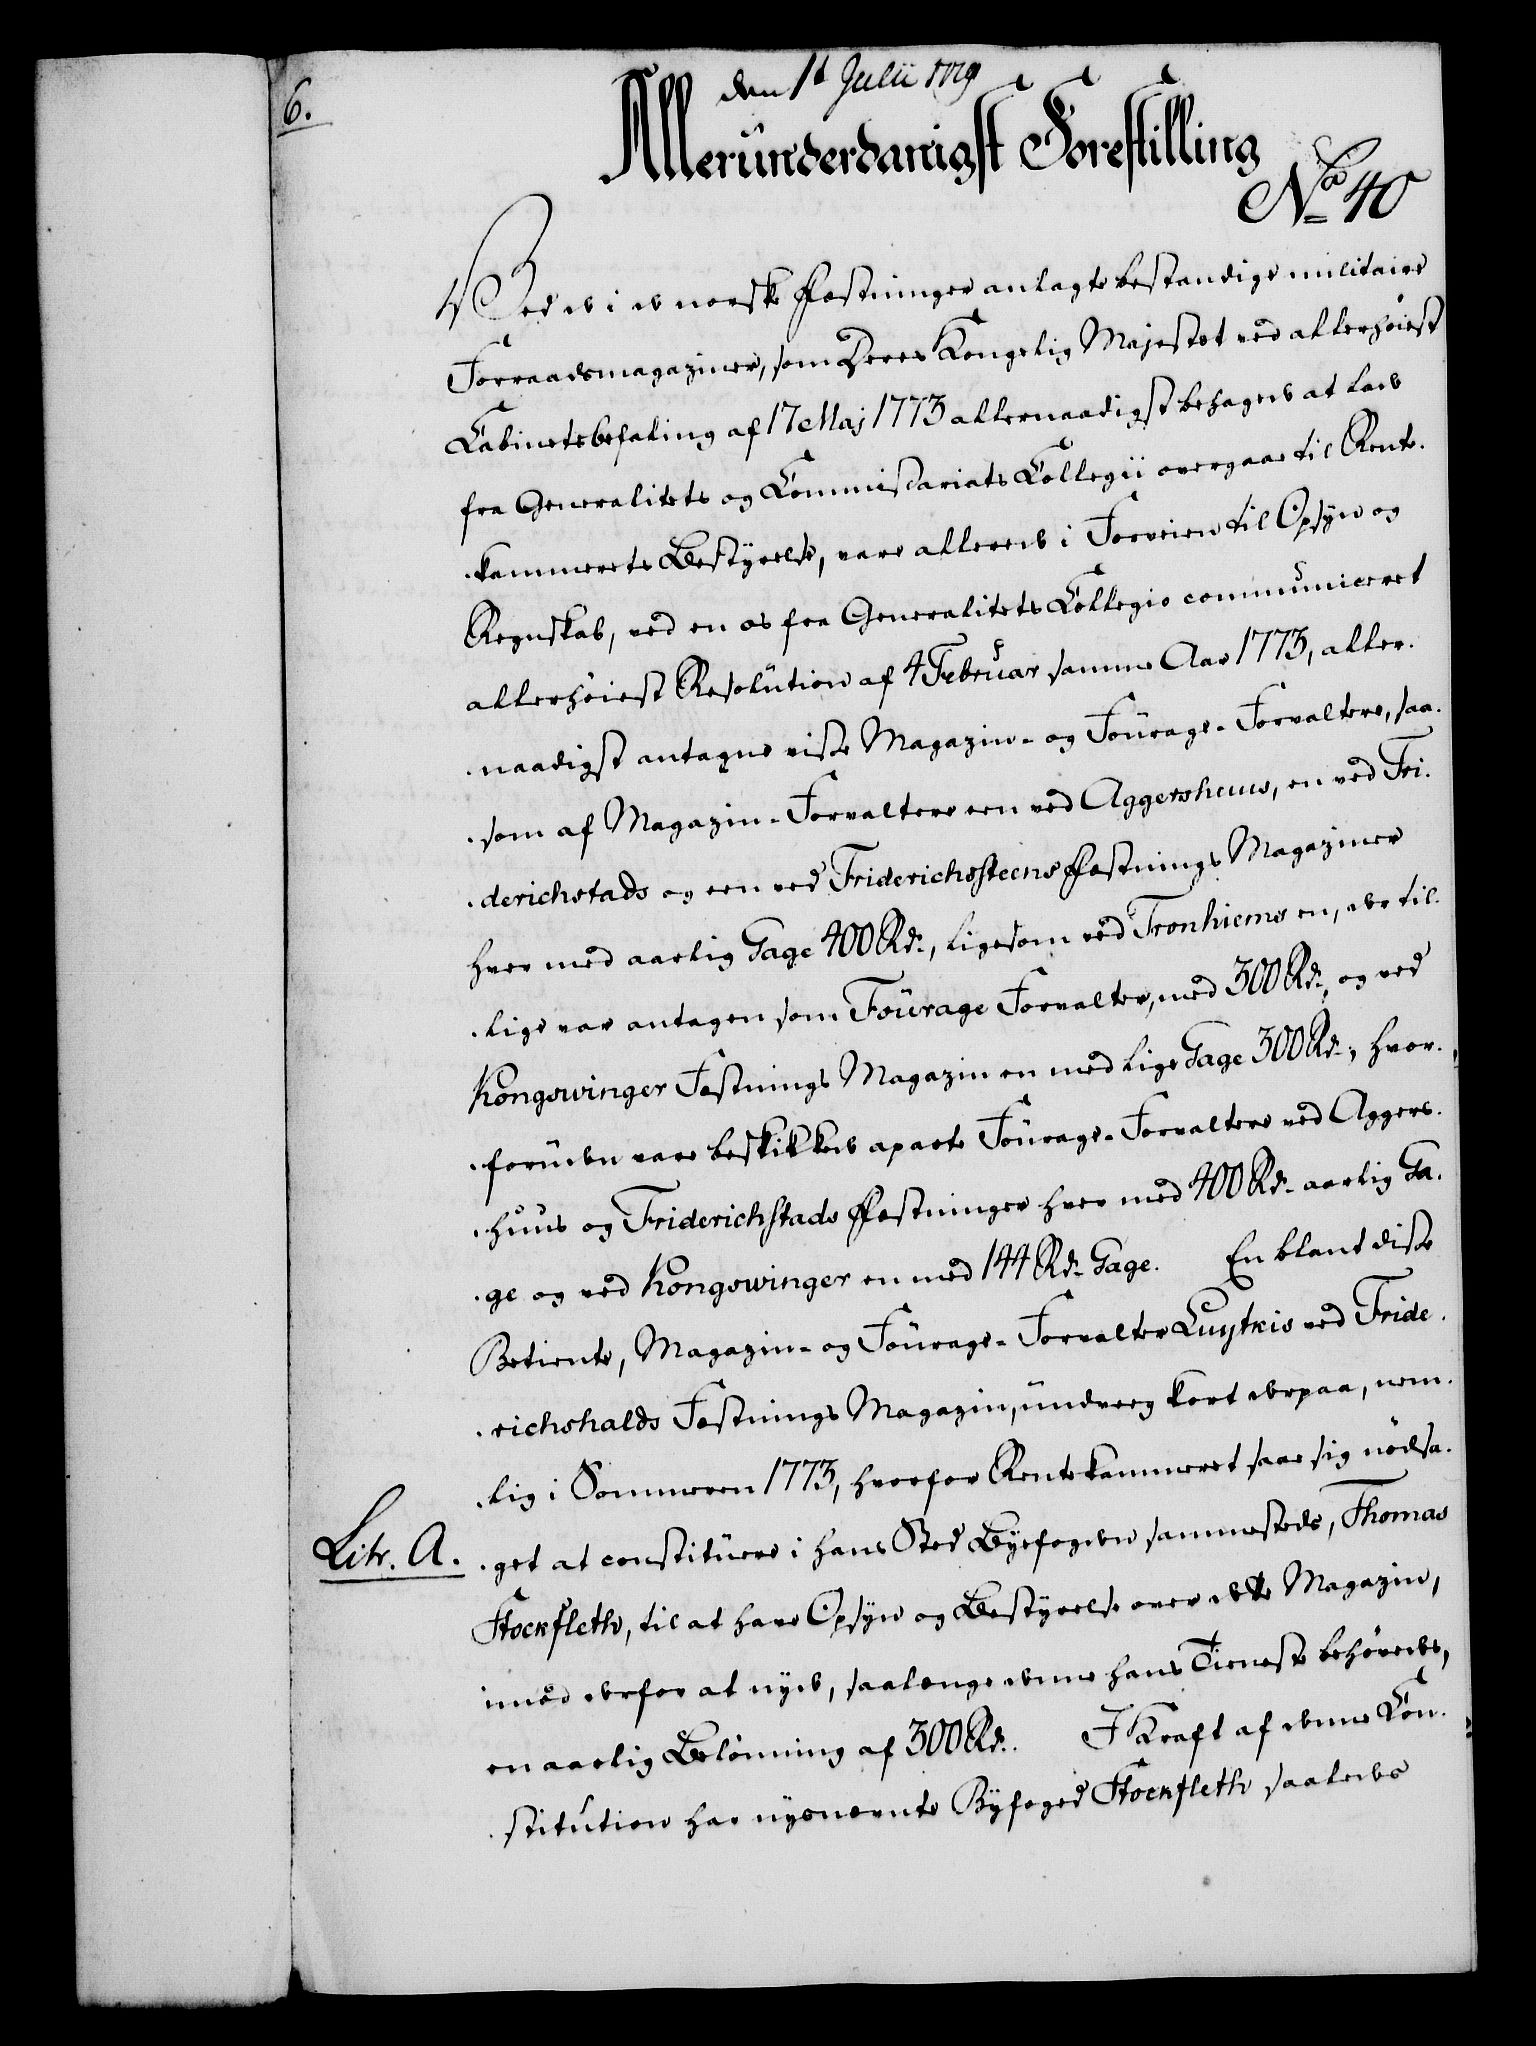 6.
den 1t Julii 1779
Alleründerdanigst Forestilling
No 40
Ved de i de norske Fæstninger anlagte bestandige militaire
Forraadsmagaziner, som Deres Kongelig Majestet ved allerhöiest
Cabinetsbefaling af 17 Maj 1773 allernaadigst behagede at lade
fra Generalitets og Commissariats Collegii overgaae til Rente-
kammerets Bestyrelse, vare allerede i Forveien til Opsyn og
Regnskab, ved en os fra Generalitets Collegio communiceret
allerhöiest Resolution af 4 Februar samme Aar 1773, aller-
naadigst antagne visse Magazin- og Fourage-Forvaltere, saa-
som af Magazin-Forvaltere een ved Aggershuus, en ved Fri-
derichstads og een ved Friderichssteens Fæstnings Magaziner
hver med aarlig Gage 400 Rd., ligesom ved Tronhiems en, der til-
lige var antagen som Fourage Forvalter, med 300 Rd., og ved
Kongswinger Fæstnings Magazin en med lige Gage 300 Rd., hvor-
foruden vare beskikkede aparte Fourage-Forvaltere ved Aggers-
huus og Friderichstads Fæstninger hver med 400 Rd. aarlig Ga-
ge og ved Kongswinger en med 144 Rd. Gage. En blant disse
Betiente, Magazin- og Fourage-Forvalter Luytkis ved Fride-
richshalds Fæstnings Magazin, undveeg kort derpaa, nem-
lig i Sommeren 1773, hvorfor Rentekammeret saae sig nödsa-
Litr. A.
get at constituere i hans Sted Byefogden sammesteds, Thomas
Stockfleth, til at have Opsyn og Bestyrelse over dette Magazin,
imod derfor at nyde, saalænge denne hans Tieneste behövedes,
en aarlig Belönning af 300 Rd. I Kraft af denne Con-
stitution har nysnevnte Byfoged Stockfleth saaledes